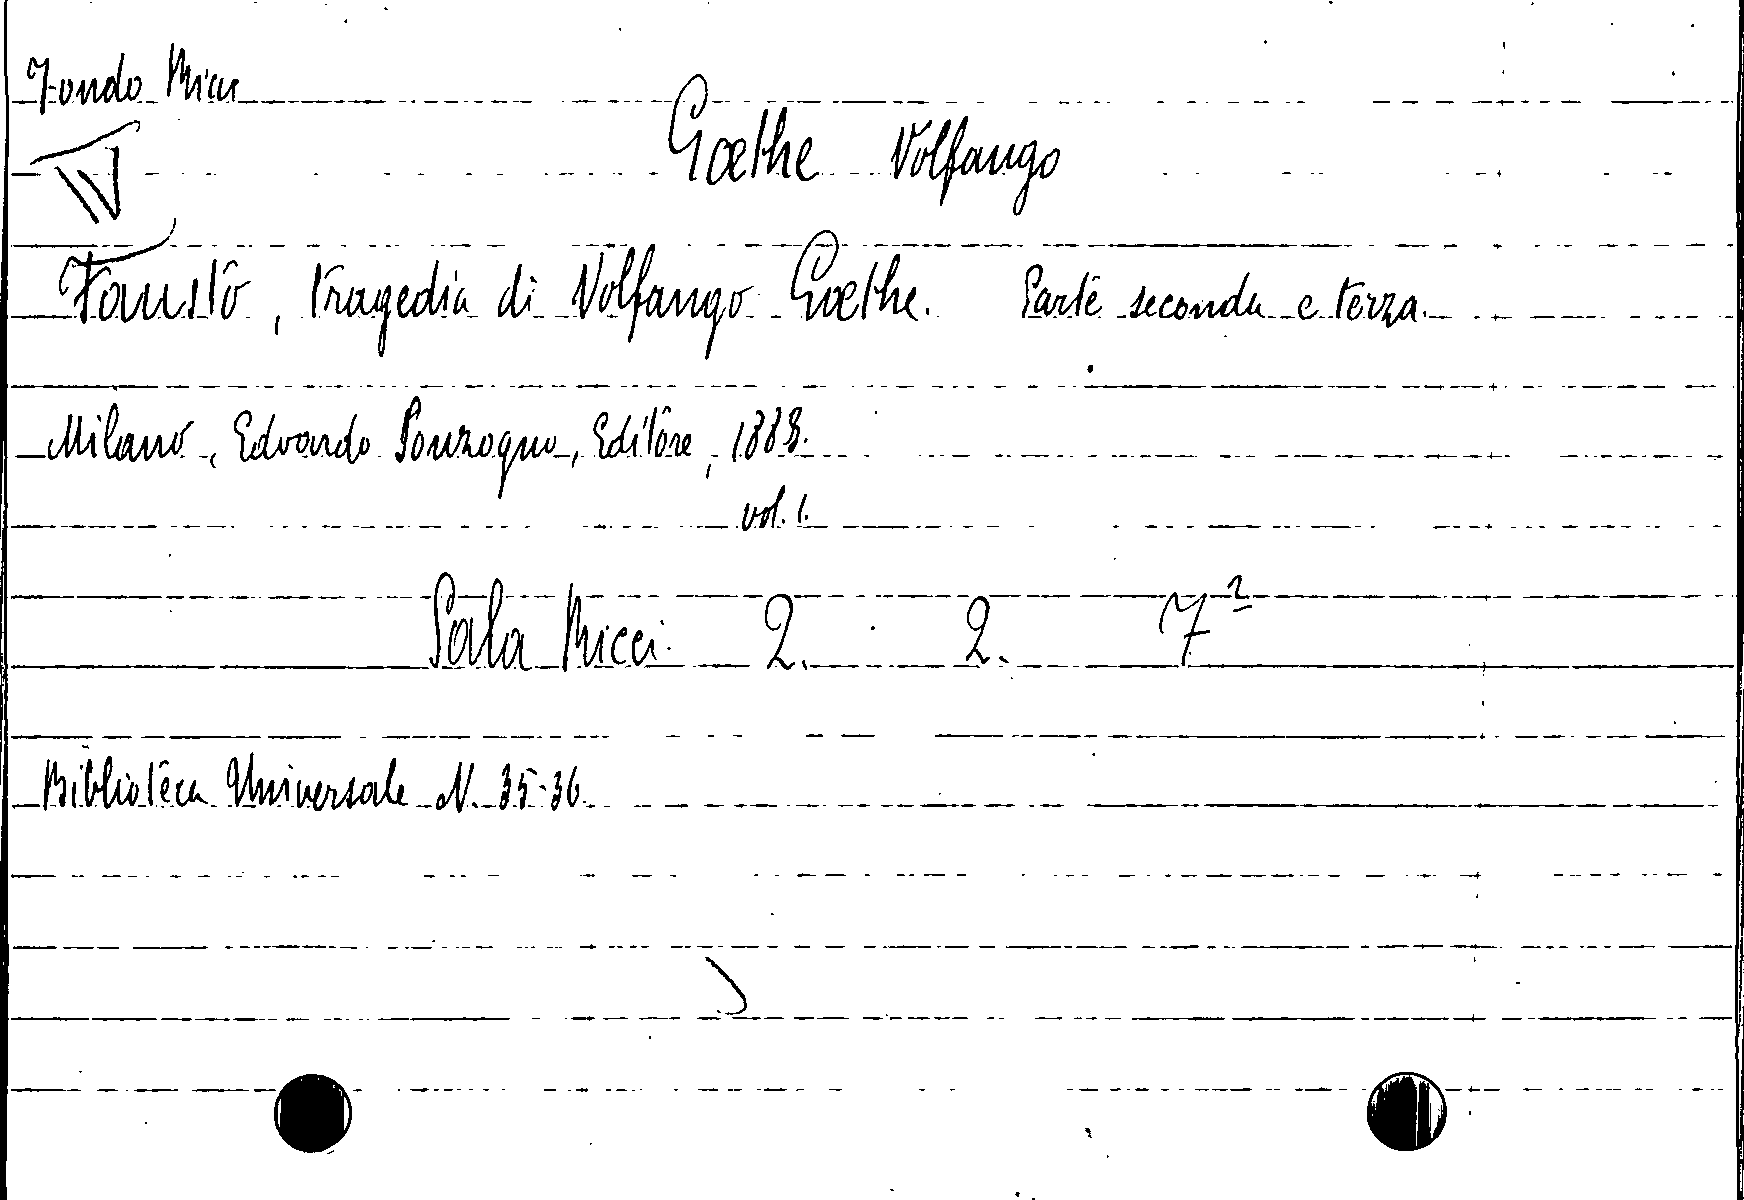 Fondo Ricci
Goethe Volfango
Fausto, tragedia di Volfango Goethe. Parte seconda e terza.
Milano, Edoardo Sonzogno, Editore, 1883.
vol. 1.
Sala Ricci. 2. 2. 7²
Biblioteca Universale N. 35-36